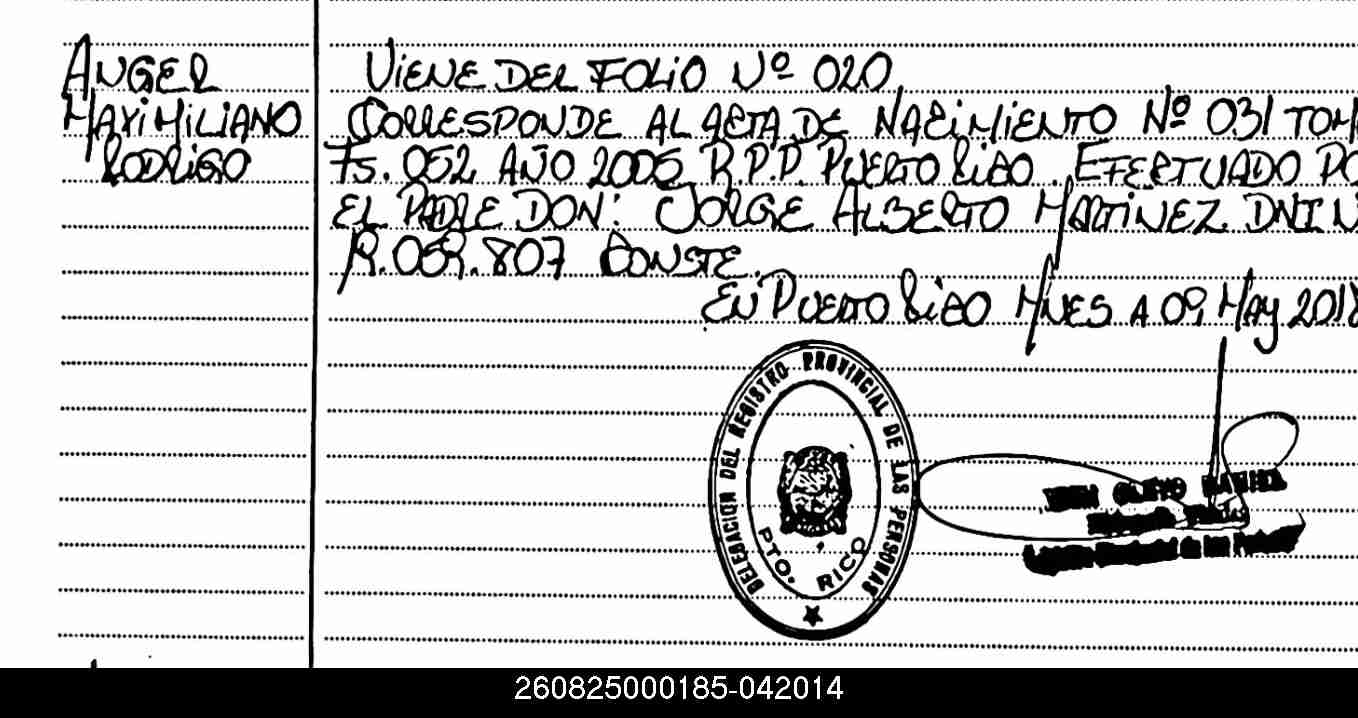 ANGEL
MAXIMILIANO
RODRIGO
VIENE DEL FOLIO Nº 020
CORRESPONDE AL ACTA DE NACIMIENTO Nº 031 TOM
Fs. 052 AÑO 2005 R.P.P. PUERTO RICO. EFECTUADO PO
EL PADRE DON: JORGE ALBERTO MARTINEZ DNI N
.807 CONSTE.
EN PUERTO RICO MNES A 09 MAY 2018
DELEGACION DEL REGISTRO PROVINCIAL DE LAS PERSONAS
PTO. RICO
260825000185-042014